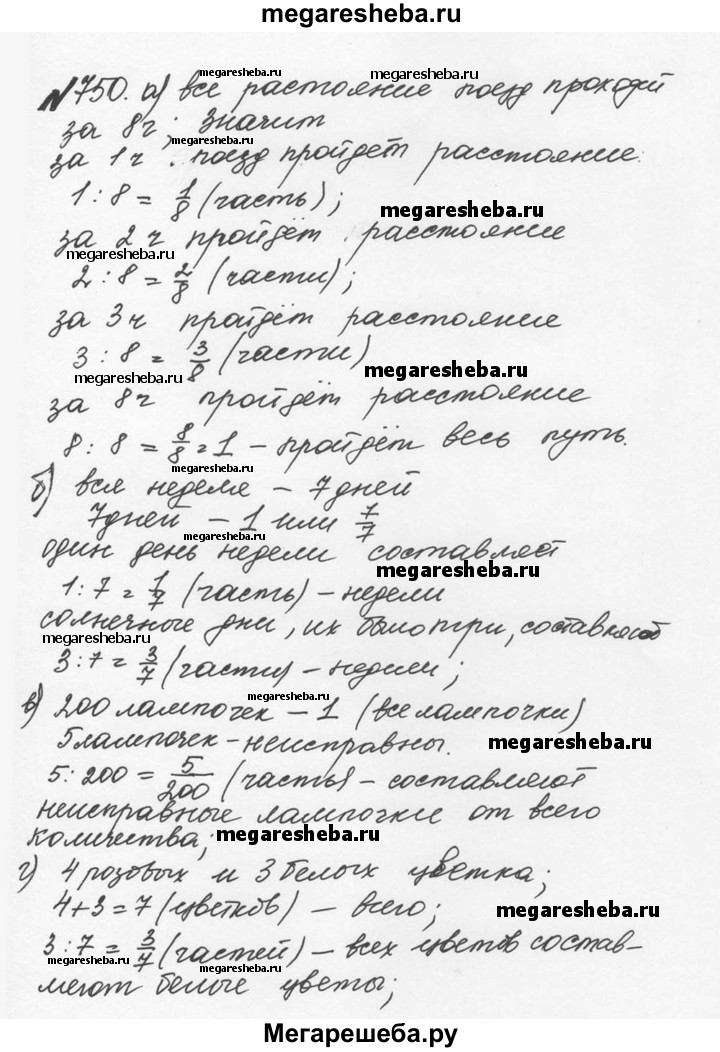 megaresheba.ru
№750. а) все растояние поезд проходит
megaresheba.ru megaresheba.ru
за 8ч; значит
megaresheba.ru
за 1ч поезд пройдет расстояние:
1 : 8 = 1/8 (часть);
megaresheba.ru
за 2ч пройдёт расстояние
megaresheba.ru
2 : 8 = 2/8 (части);
за 3ч пройдёт расстояние
3 : 8 = 3/8 (части)
megaresheba.ru megaresheba.ru
за 8ч пройдёт расстояние
8 : 8 = 8/8 = 1 – пройдёт весь путь.
megaresheba.ru
б) вся неделя – 7 дней
7 дней – 1 или 7/7
megaresheba.ru
один день недели составляет
megaresheba.ru
1 : 7 = 1/7 (часть) – недели
солнечные дни, их было три, составляют
megaresheba.ru
3 : 7 = 3/7 (части) – недели;
megaresheba.ru
в) 200 лампочек – 1 (все лампочки)
5 лампочек – неисправны.
megaresheba.ru
5 : 200 = 5/200 (часть) – составляют
неисправные лампочки от всего
количества;
megaresheba.ru
г) 4 розовых и 3 белых цветка;
4 + 3 = 7 (цветков) – всего;
megaresheba.ru
3 : 7 = 3/7 (частей) – всех цветов состав-
megaresheba.ru
ляют белые цветы;
megaresheba.ru
Мегарешеба.ру